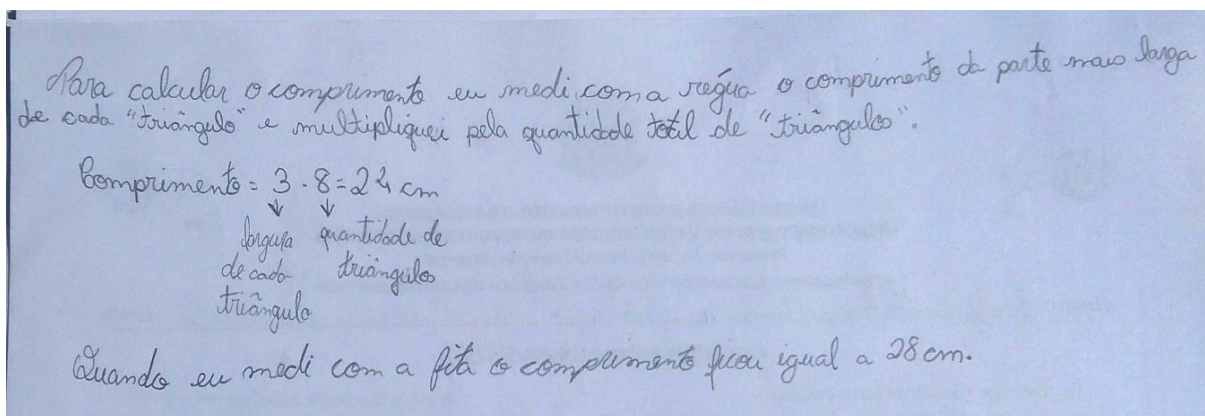 Para calcular o comprimento eu medi com a régua o comprimento da parte mais larga
de cada "triângulo" e multipliquei pela quantidade total de "triângulos".
Comprimento = 3 . 8 = 24 cm
↓ ↓
largura quantidade de
de cada triângulos
triângulo
Quando eu medi com a fita o comprimento ficou igual a 28 cm.